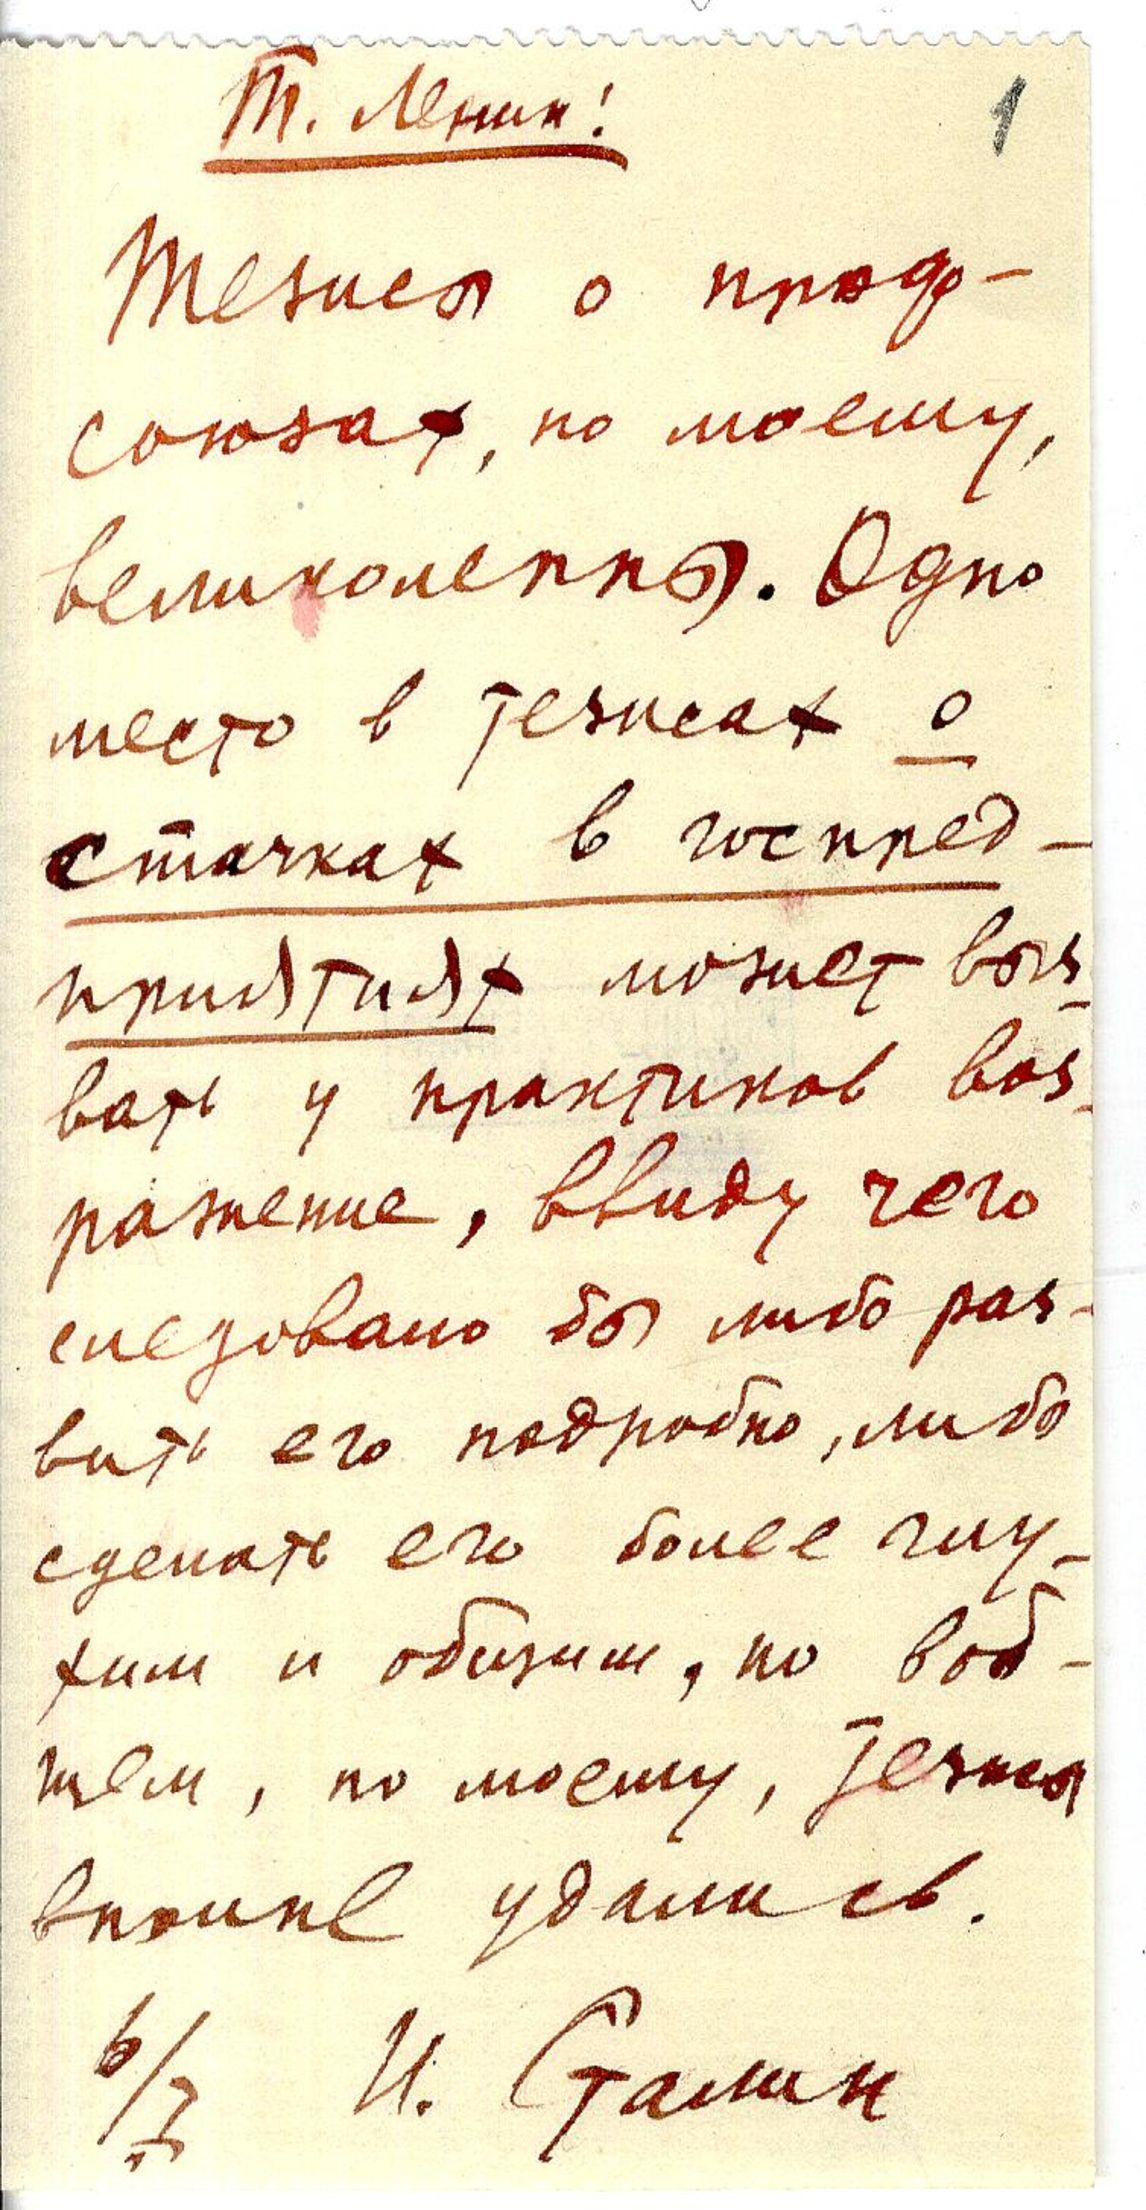 Т. Ленин!
1
Тезисы о проф-
союзах, по моему,
великолепны. Одно
место в тезисах о
стачках в госпред-
приятиях может выз-
вать у практиков воз-
ражение, ввиду чего
следовало бы либо раз-
вить его подробно, либо
сделать его более глу-
хим и общим, но воб-
щем, по моему, тезисы
вполне удались.
6/I И. Сталин